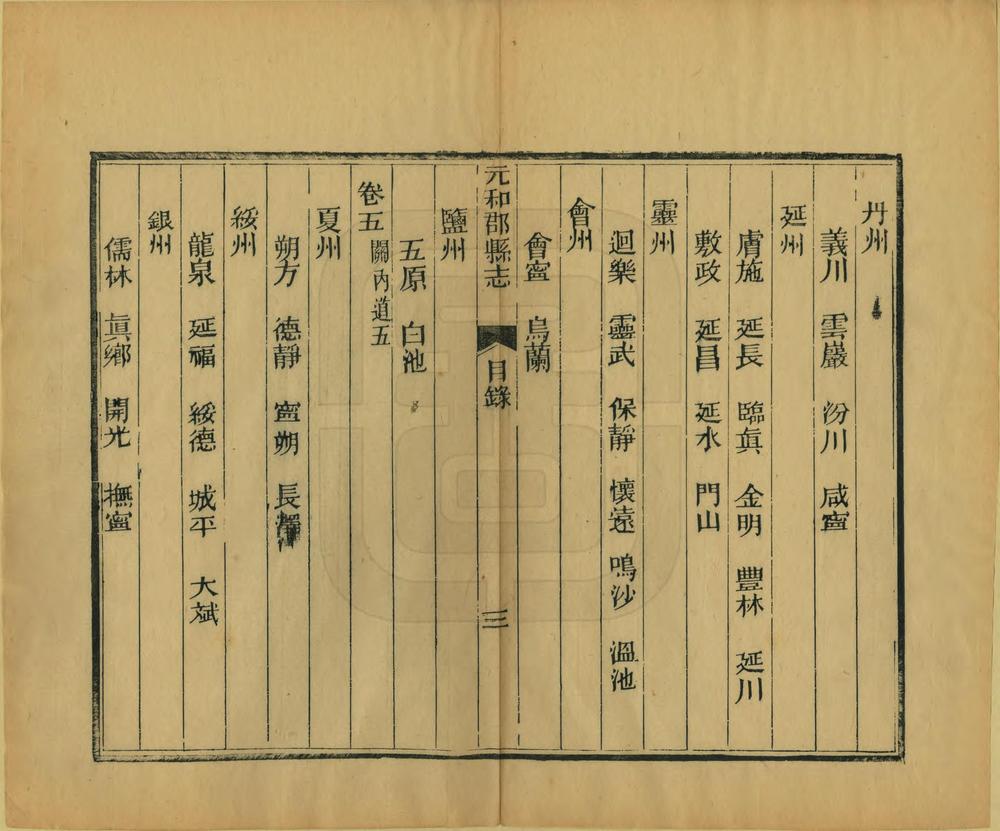 丹州
義川　雲巖　汾川　咸寧
延州
膚施　延長　臨眞　金明　豐林　延川
敷政　延昌　延水　門山
靈州
迴樂　靈武　保靜　懷遠　鳴沙　溫池
會州
會寧　烏蘭
元和郡縣志　目錄　三
鹽州
五原　白池
卷五　關內道五
夏州
朔方　德靜　寧朔　長澤
綏州
龍泉　延福　綏德　城平　大斌
銀州
儒林　眞鄉　開光　撫寧